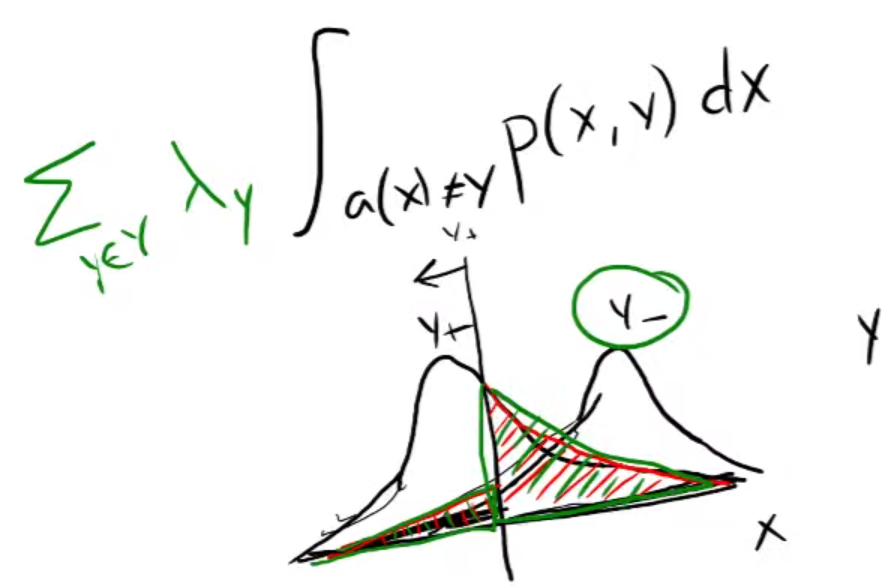 ∑_{y∈Y} λ_y ∫_{a(x)≠y} p(x,y) dx
y+
y+
y-
y
x